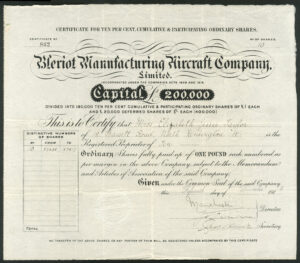 CERTIFICATE FOR TEN PER CENT. CUMULATIVE & PARTICIPATING ORDINARY SHARES.
CERTIFICATE Nº
Nº OF SHARES
10
Bleriot Manufacturing Aircraft Company,
Limited.
INCORPORATED UNDER THE COMPANIES ACTS 1908 AND 1913.
Capital £200,000
DIVIDED INTO 180,000 TEN PER CENT CUMULATIVE & PARTICIPATING ORDINARY SHARES OF £1 EACH
AND DEFERRED SHARES OF EACH
This is to Certify that Miss Elizabeth Taylor
DISTINCTIVE NUMBERS OF SHARES
of
Registered Proprietor of Ten
Ordinary Shares fully paid up of ONE POUND each numbered as
per margin in the above Company, subject to the Memorandum
and Articles of Association of the said Company.
Given under the Common Seal of the said Company
Directors
Secretary
TOTAL
NO TRANSFER OF THE ABOVE SHARES OR ANY PORTION OF THEM WILL BE REGISTERED UNLESS ACCOMPANIED BY THIS CERTIFICATE